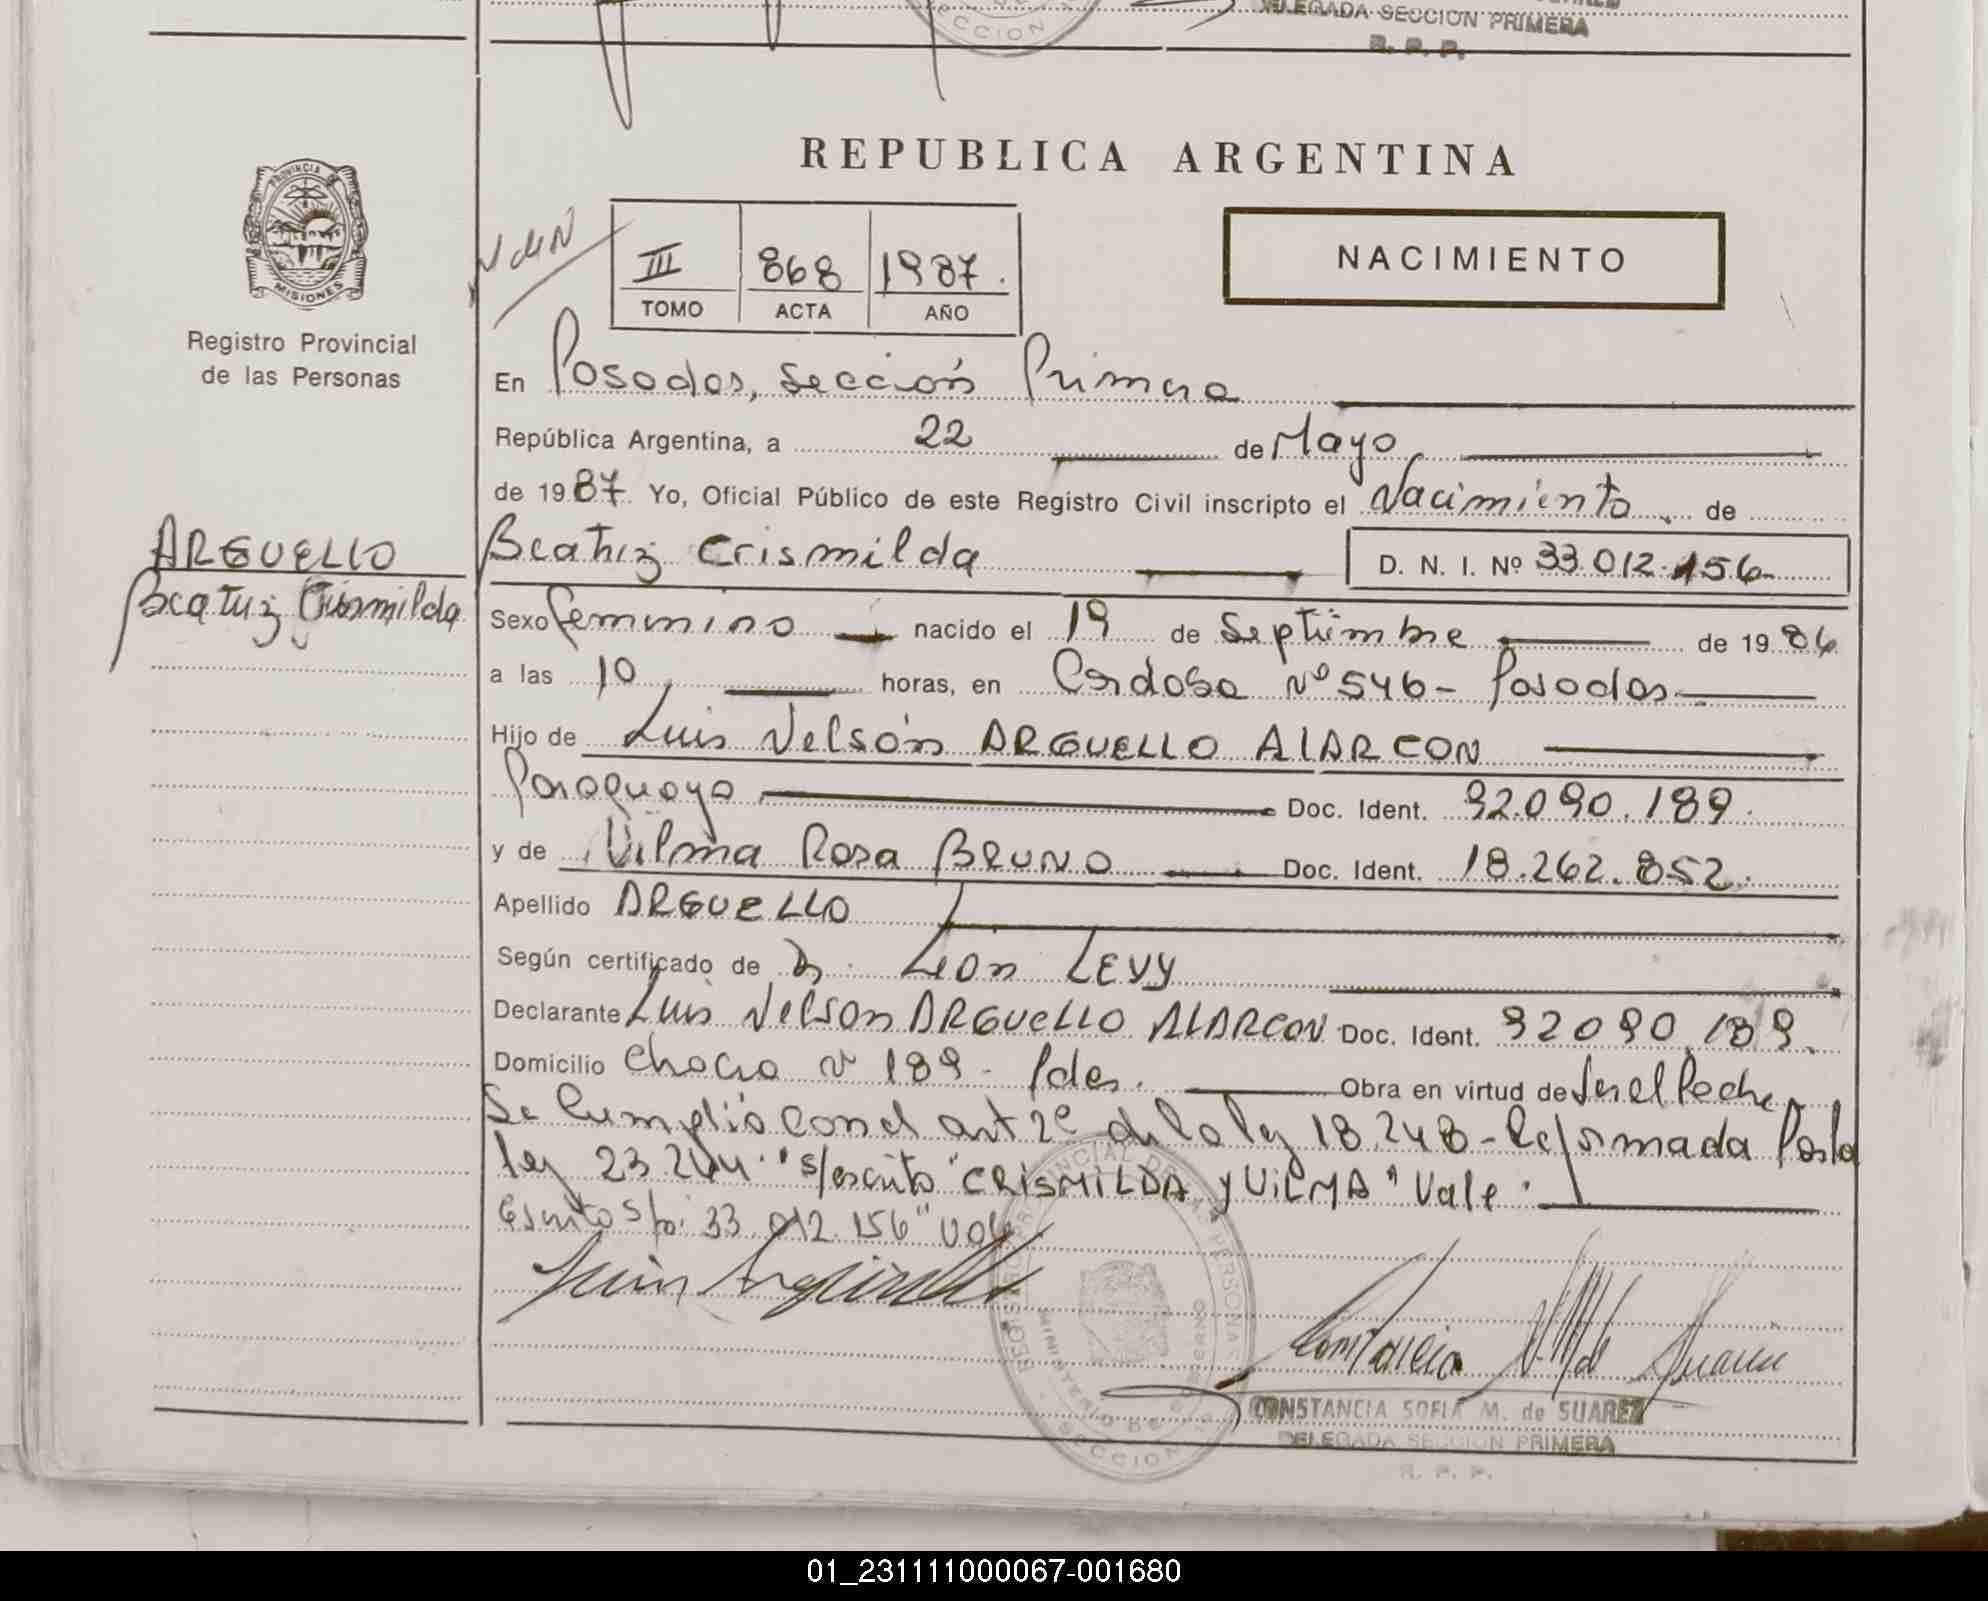 SECCION
DELEGADA SECCION PRIMERA
R. P. P.
REPUBLICA ARGENTINA
PROVINCIA DE
MISIONES
Registro Provincial
de las Personas
NACIMIENTO
III 868 1987.
TOMO ACTA AÑO
En Posadas, Sección Primera
República Argentina, a 22 de Mayo
de 1987. Yo, Oficial Público de este Registro Civil inscripto el Nacimiento de
ARGUELLO
Beatriz Crismilda
Beatriz Crismilda D. N. I. Nº 33.012.156
Sexo femenino nacido el 19 de Septiembre de 1986
a las 10 horas, en Cordoba Nº 546 - Posadas
Hijo de Luis Nelsón ARGUELLO ALARCON
Paraguaya Doc. Ident. 92.090.189.
y de Vilma Rosa BRUNO Doc. Ident. 18.262.852.
Apellido ARGUELLO
Según certificado de Dr. León LEVY
Declarante Luis Nelson ARGUELLO ALARCON Doc. Ident. 92090.189.
Domicilio Chaco Nº 189 - Pdas. Obra en virtud de Ser el Padre
Se Cumplió con el art 2º de la ley 18.248 - Reformada Por la
ley 23.264." s/escrito "CRISMILDA y VILMA" Vale.
Escrito s/r: 33.012.156" Vale
REGISTRO PROVINCIAL DE LAS PERSONAS
MINISTERIO DE GOBIERNO
SECCION
CONSTANCIA SOFIA M. de SUAREZ
DELEGADA SECCION PRIMERA
R. P. P.
01_231111000067-001680